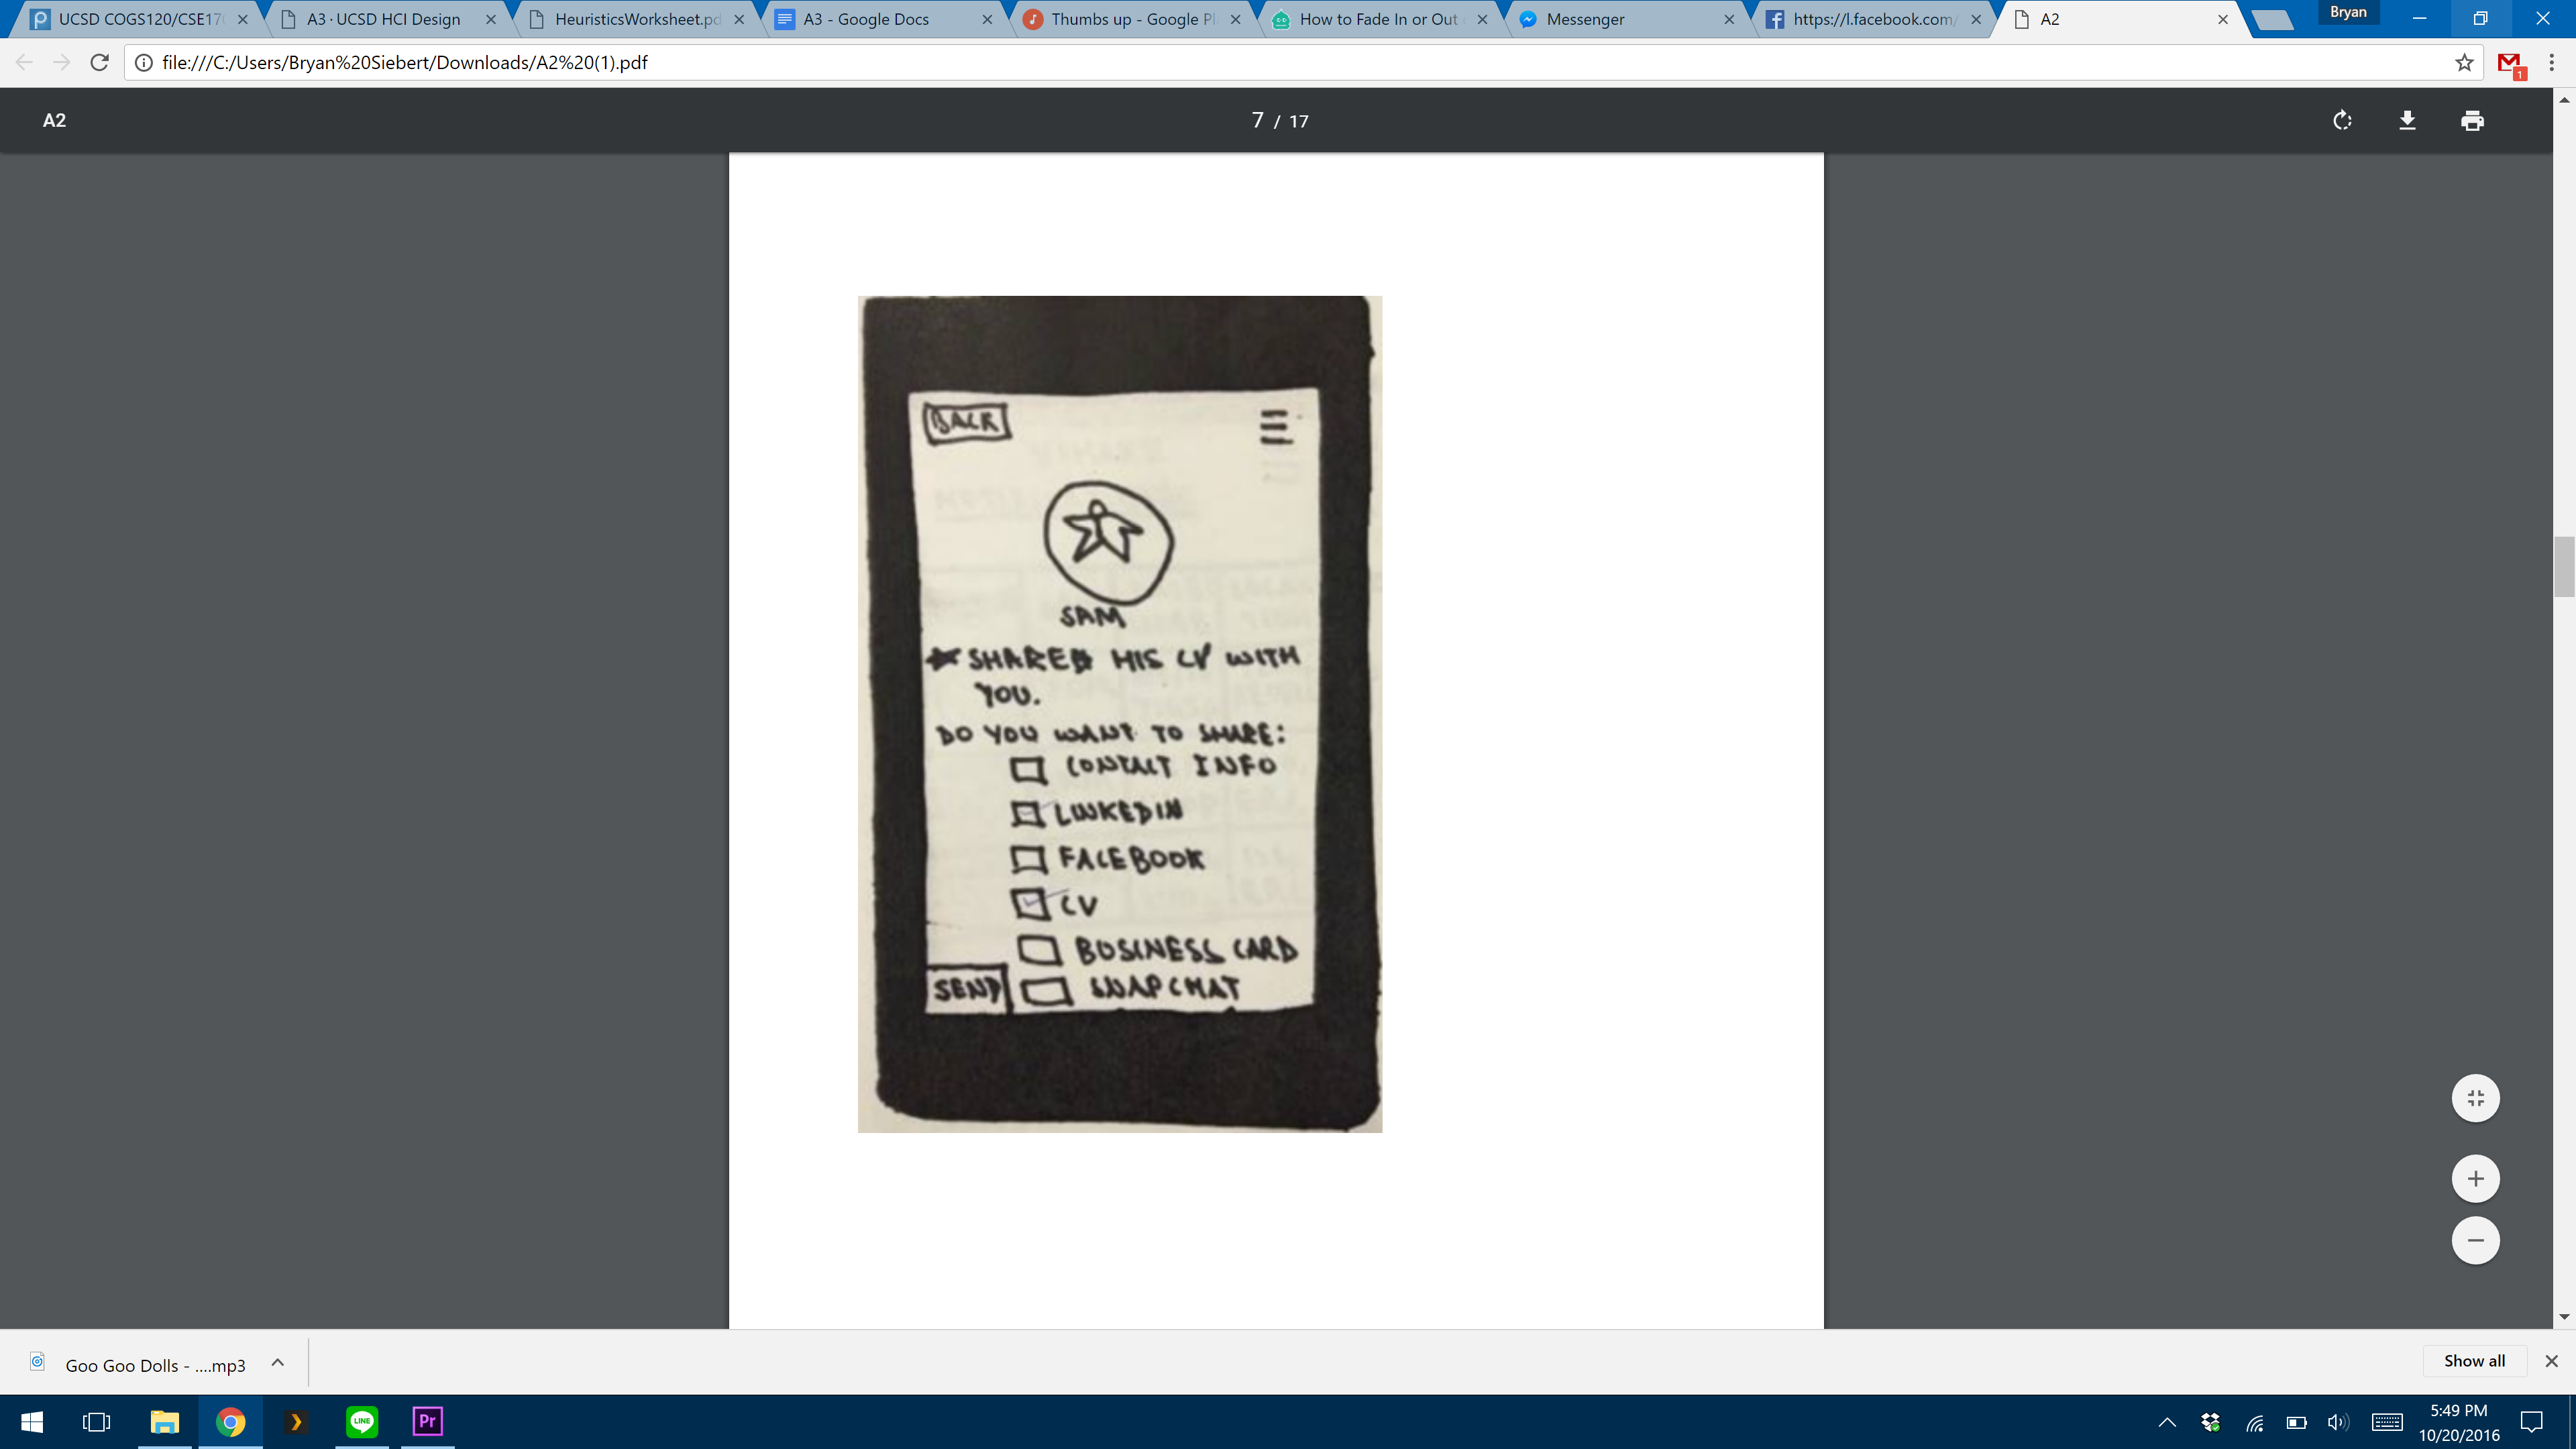 UCSD COGS120/CSE17
A3 · UCSD HCI Design
HeuristicsWorksheet.pd
A3 - Google Docs
Thumbs up - Google Pl
How to Fade In or Out
Messenger
https://l.facebook.com/
A2
Bryan
file:///C:/Users/Bryan%20Siebert/Downloads/A2%20(1).pdf
1
A2
7 / 17
BACK
SAM
SHARED HIS CV WITH
YOU.
DO YOU WANT TO SHARE:
CONTACT INFO
LINKEDIN
FACEBOOK
CV
BUSINESS CARD
SEND SNAPCHAT
Goo Goo Dolls - ....mp3
Show all
LINE
Pr
5:49 PM
10/20/2016